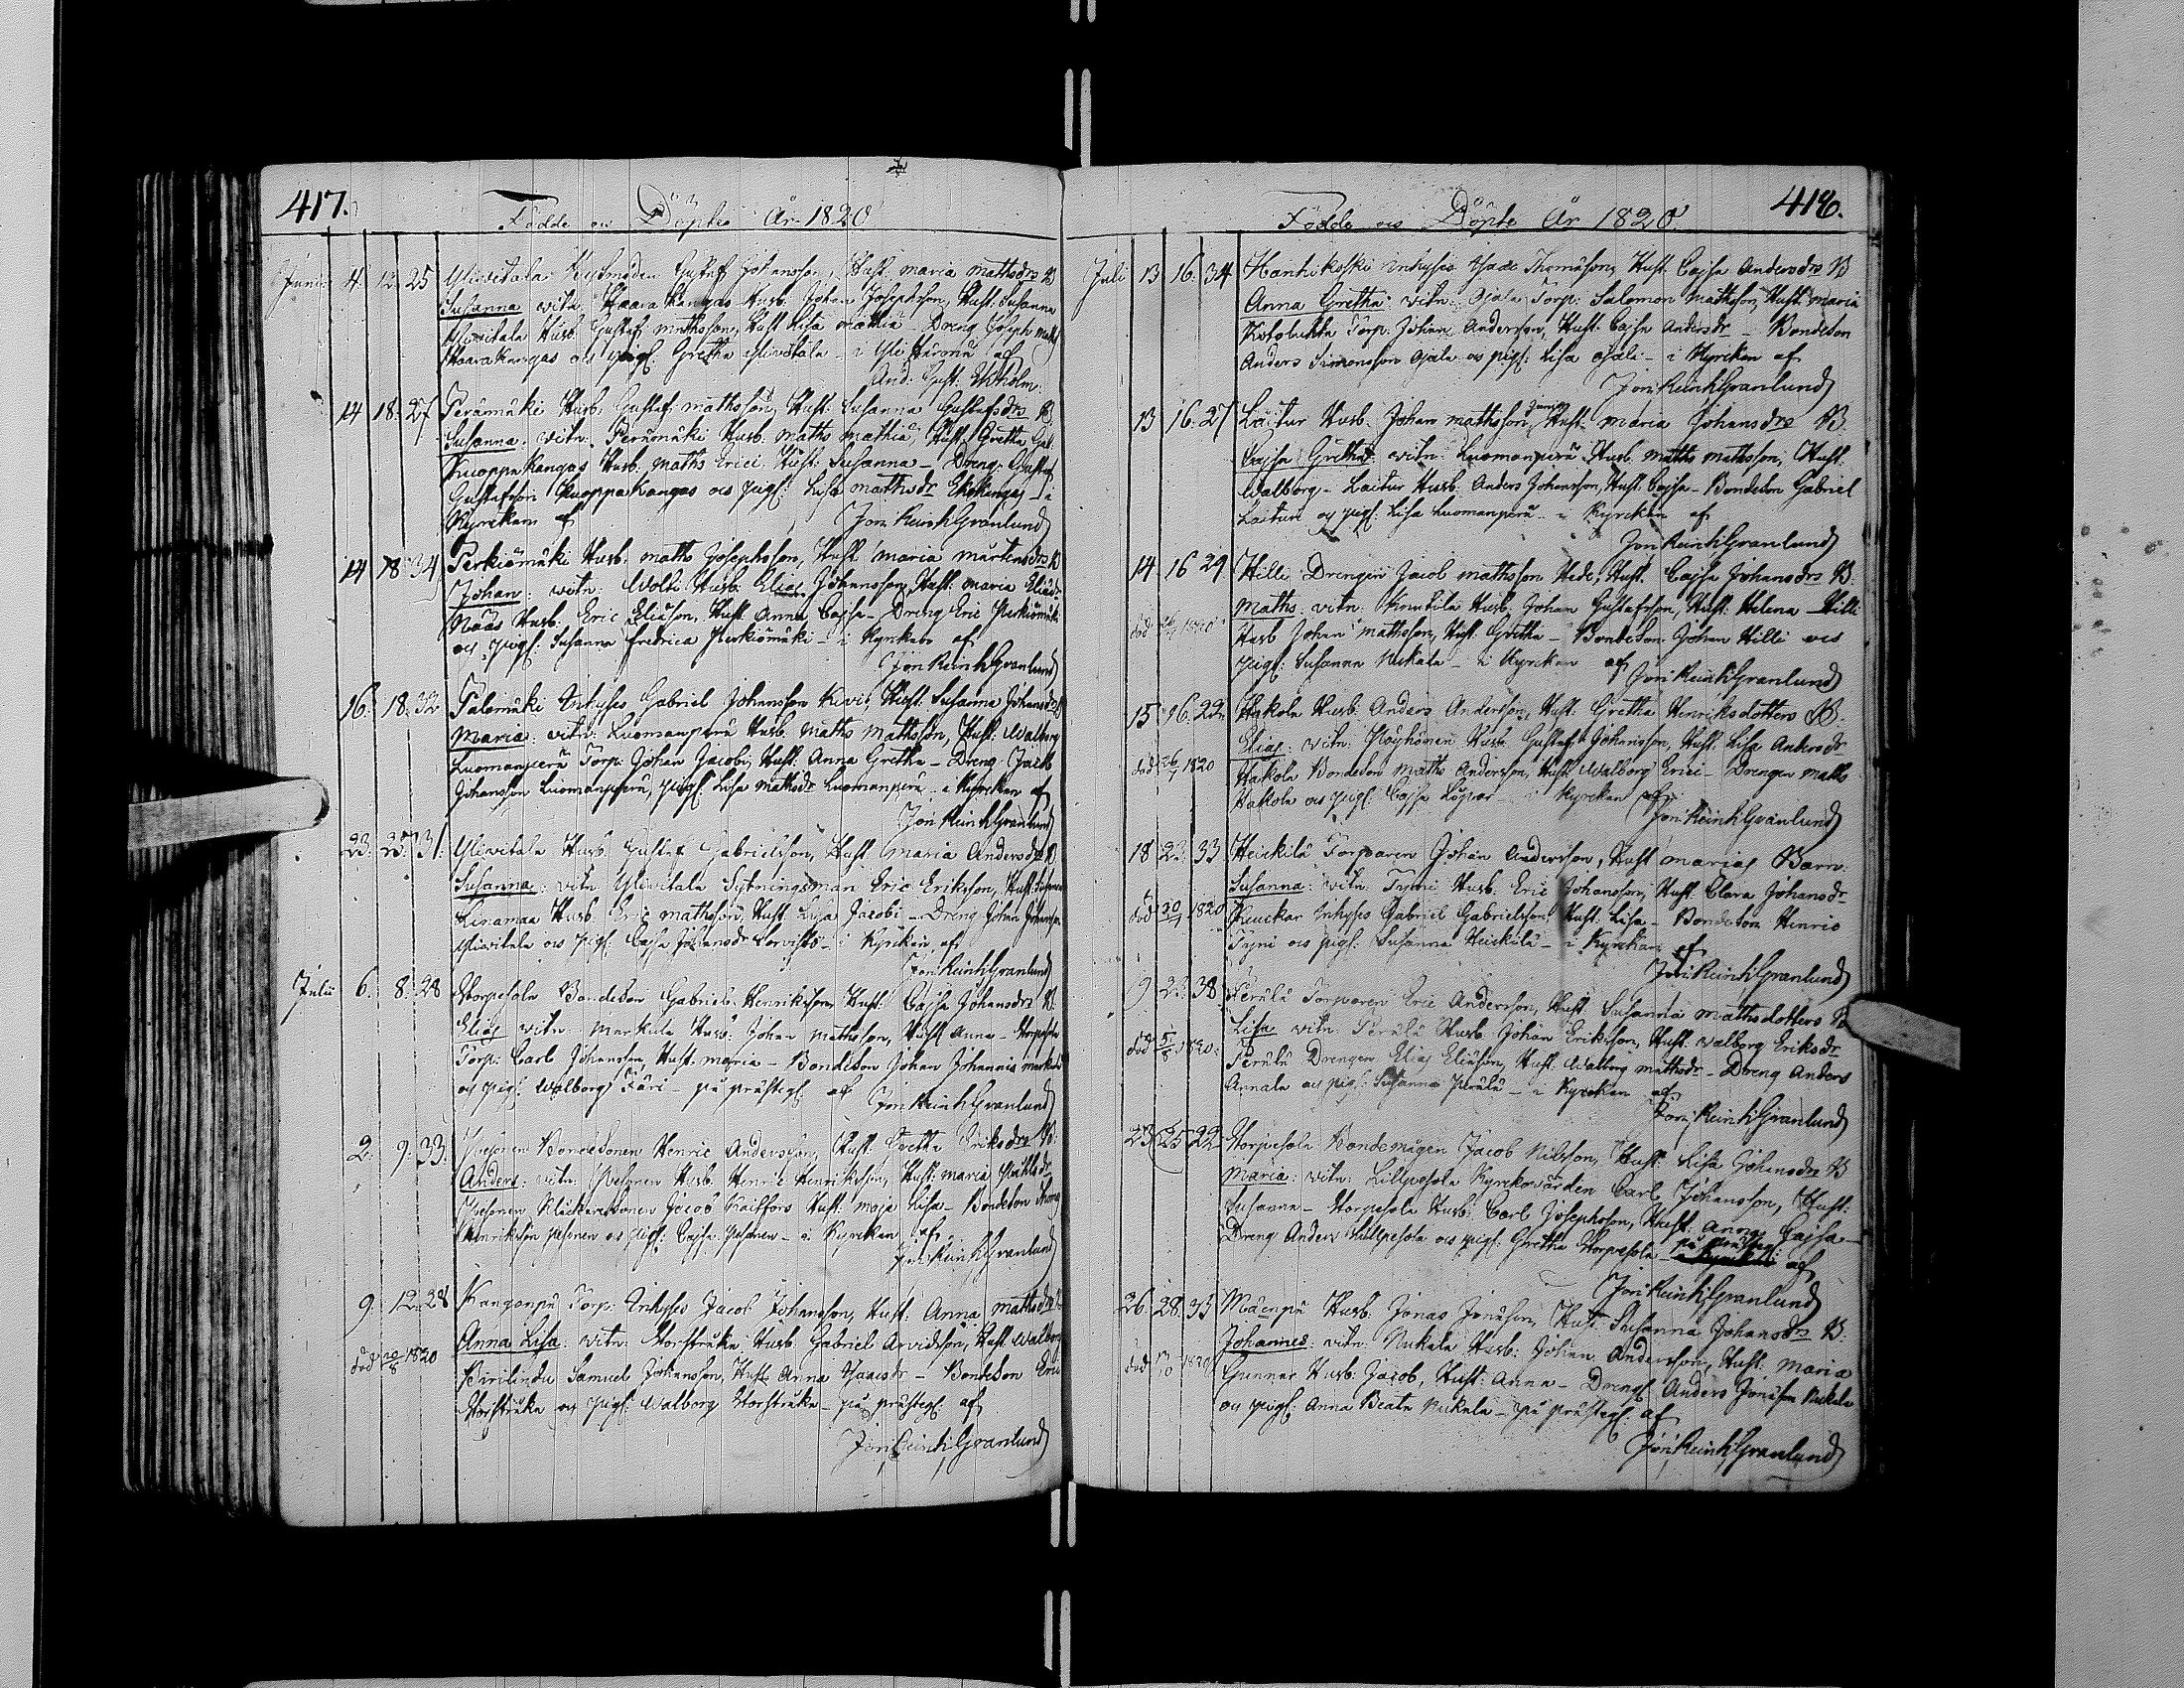 417.
Födde och Döpte År 1820
Junii 4. 12. 25 Yliwitala Gustaf Johansson, Hust. Maria Mathsdrs B
Susanna witn. Haarakangas Husb. Johan Josephsson, Hust. Susanna
Yliwitala Husb. Gustaf Mathsson, Hust. Lisa Mathiæ Dreng Joseph Maths
Haarakangas och pig: Gretha Yliwitala i Ylihärmä af
And: Gust. Ekholm.
14 18. 27 Perämäki Husb. Gustaf Mathsson, Hust. Susanna Gustafsdrs B.
Susanna. witn. Perämäki Husb. Maths Mathiæ, Hust. Gretha
Kuoppakangas Husb. Maths Erici Hust. Susanna - Dreng Gustaf
Gustafsson Kuoppakangas och pig: Lisa Mathsdr - i
Kyrckan af Jon: Reinh: Granlund
14 18 34 Perkiömäki Husb. Maths Josephsson, Hust. Maria Mårtensdrs B
Johan: witn: Wolti Husb. Elias Johansson, Hust. Maria Eliædr
Nääs Husb. Eric Eliæson, Hust. Anna Cajsa - Dreng Eric Perkiömäki
och pig: Susanna Fredrica Perkiömäki - i Kyrckan af
Jon: Reinh: Granlund
16. 18. 32 Palomäki Inhyses Gabriel Johansson Kivi, Hust. Susanna Johansdrs B
Maria: witn: Luomanperä Husb. Maths Mathsson, Hust. Walborg
Luomanperä Torp. Johan Jacobi, Hust. Anna Gretha - Dreng Jacob
Johansson Luomanperä, pig: Lisa Mathsdr Luomanperä i Kyrckan af
Jon: Reinh: Granlund
23. 25. 31. Yliwitala Husb. Gustaf Gabrielsson, Hust. Maria Andersdrs B
Susanna: witn Yliwitala Sytningsman Eric Ericksson, Hust. Susanna
Linamaa Husb. Eric Mathsson, Hust. Lisa Jacobi - Dreng Johan Johansson
Yliwitala och pig: Cajsa Johansdr Sorvisto - i Kyrckan af
Jon: Reinh: Granlund
Julii 6. 8. 28 Storpesola Bondeson Gabriel Henriksson, Hust. Cajsa Johansdrs B.
Elias witn Markula Husb: Johan Mathsson, Hust. Anna - Storpesola
Torp: Carl Johansson, Hust. Maria - Bondeson Johan Johannis Markula
och pig: Walborg Färi - på prästeg: af Jon: Reinh: Granlund
2. 9. 33. Pesonen Bondesonen Henric Andersson, Hust. Gretha Eriksdrs B.
Anders: witn: Pesonen Husb. Henric Henriksson, Hust. Maria
Pesonen Klockaresonen Jacob Kaiffors Hust. Maja Lisa - Bondeson
Henriksson Pesonen och pig: Cajsa Pesonen - i Kyrckan af
Jon: Reinh: Granlund
9. 12. 28 Kanganpä Torp: Inhyses Jacob Johansson, Hust. Anna Mathsdrs B
död 20/8 1820 Anna Lisa: witn: Storstråka Husb. Gabriel Arvidsson, Hust. Walborg
Pirilindu Samuel Johansson, Hust. Anna Isacsdr - Bondeson Eric
Storstråka och pig: Walborg Storstråka - på prästeg: af
Jon: Reinh: Granlund
418.
Födde och Döpte År 1820
Juli 13 16. 34 Hanhikoski Inhyses Isac Thomæson, Hust. Cajsa Andersdrs B
Anna Gretha: witn: Ojala Torp: Salomon Mathsson, Hust. Maria
Torp: Johan Andersson, Hust. Cajsa Andersdr - Bondeson
Anders Simonsson Ojala och pig: Lisa Ojala - i Kyrckan af
Jon: Reinh: Granlund
13 16. 27 Laitur Husb. Johan Mathsson Junior, Hust. Maria Johansdrs B.
Cajsa Gretha: witn: Luomanperä Husb Maths Mathsson, Hust:
Walborg - Laitur Husb: Anders Johansson, Hust. Cajsa - Bondeson Gabriel
Laituri och pig: Lisa Luomanperä - i Kyrckan af
Jon: Reinh: Granlund
14 16 29 Hilli Drengen Jacob Mathsson Hede, Hust. Cajsa Johansdrs B.
död 26/7 1820 Maths: witn. Knutila Husb. Johan Gustafsson, Hust: Helena - Hilli
Husb Johan Mathsson, Hust. Gretha - Bondeson Johan Hilli och
pig: Susanna Nukala - i Kyrckan af Jon: Reinh: Granlund
15 16. 22. Hakola Husb. Anders Andersson, Hust. Gretha Henriksdotters B.
död 26/7 1820 Elias: witn: Pöyhönen Husb: Gustaf Johansson, Hust. Lisa Andersdr
Hakola Bondeson Maths Andersson, Hust. Walborg Erici - Drengen Maths
Hakola och pig: Cajsa - i Kyrckan af
Jon: Reinh: Granlund
18 23. 33 Heickilä Torparen Johan Andersson, Hust Marias Barn.
död 30/7 1820 Susanna: witn. Tyni Husb. Eric Johansson, Hust. Clara Johansdr
Inhyses Gabriel Gabrielsson Hust. Lisa - Bondeson Henric
Tyni och pig: Susanna Heickilä - i Kyrckan af
Jon: Reinh: Granlund
9 23. 38. Perälä Torparen Eric Andersson, Hust. Susanna Mathsdotters B
död 5/8 1820. Lisa witn Perälä Husb. Johan Eriksson, Hust. Walborg Eriksdr
Perälä Drengen Elias Eliæson, Hust. Walborg Mathsdr - Dreng Anders
Annala och pig: Susanna Perälä - i Kyrckan af
Jon: Reinh: Granlund
23. 25 22. Storpesola Bondemågen Jacob Nilsson, Hust: Lisa Johansdrs B
Maria: witn: Lillpesola Kyrckovärden Carl Johansson, Hust:
Susanna - Storpesola Husb: Carl Josephsson, Hust: Anna Cajsa -
Dreng Anders Lillpesola och pig: Gretha Storpesola - på prästeg: af
Jon: Reinh: Granlund
26. 28. 35 Mäenpä Husb. Jonas Jonæson, Hust. Susanna Johansdrs B.
död 13/10 1820 Johannes: witn: Nukala Husb: Johan Andersson, Hust. Maria
Gunnar Husb: Jacob, Hust: Anna - Dreng Anders Jonæson Nukala
och pig: Anna Beata Nukala - på prästeg: af
Jon: Reinh: Granlund